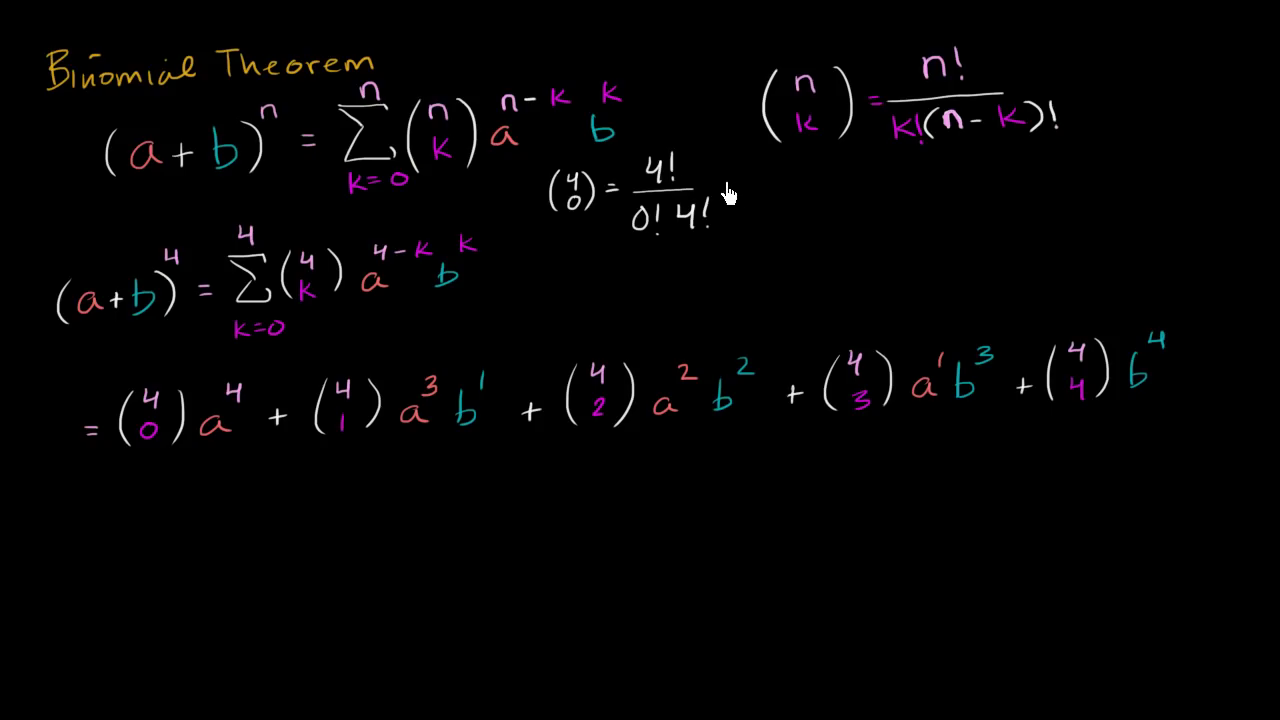 Binomial Theorem
(a+b)^n = \sum_{k=0}^{n} \binom{n}{k} a^{n-k} b^k
\binom{n}{k} = \frac{n!}{k!(n-k)!}
\binom{4}{0} = \frac{4!}{0! 4!}
(a+b)^4 = \sum_{k=0}^{4} \binom{4}{k} a^{4-k} b^k
= \binom{4}{0} a^4 + \binom{4}{1} a^3 b^1 + \binom{4}{2} a^2 b^2 + \binom{4}{3} a^1 b^3 + \binom{4}{4} b^4